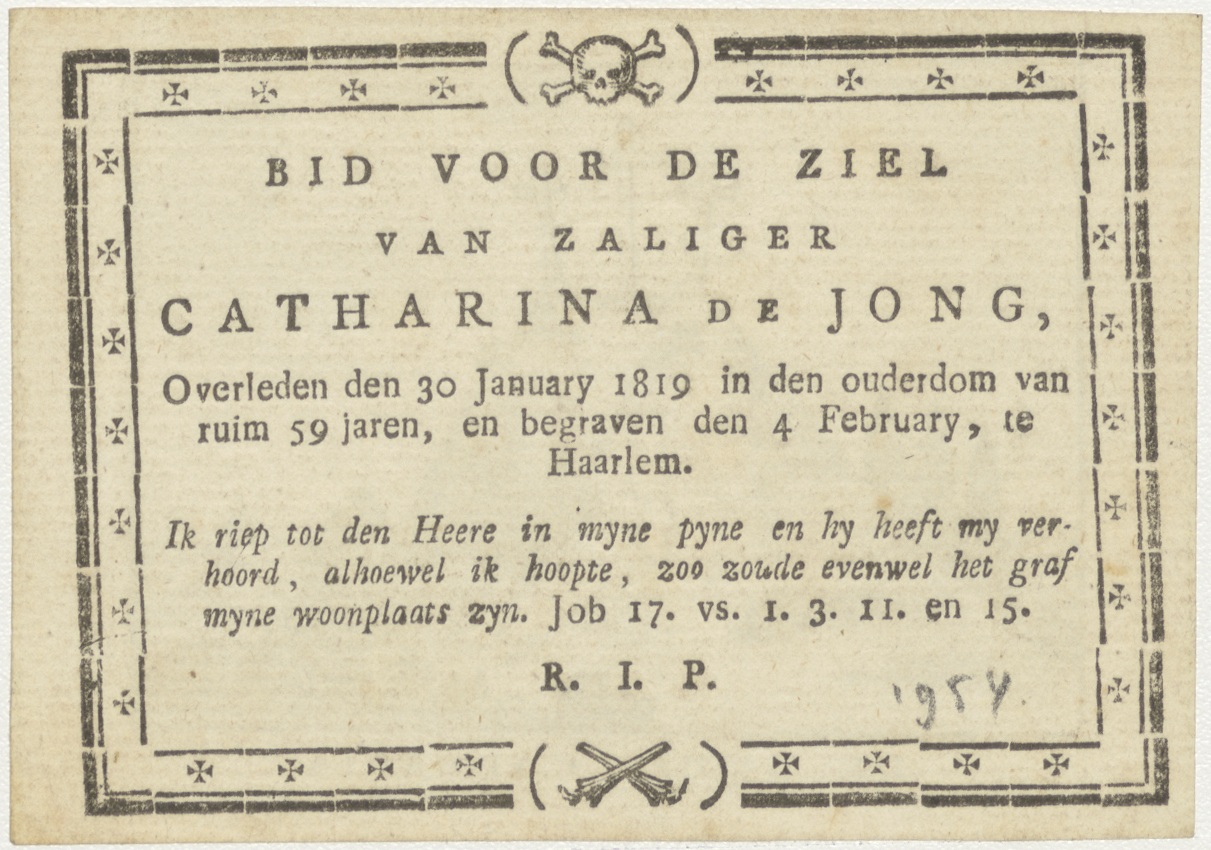 BID VOOR DE ZIEL
VAN ZALIGER
CATHARINA DE JONG,
Overleden den 30 January 1819 in den ouderdom van
ruim 59 jaren, en begraven den 4 February, te
Haarlem.
Ik riep tot den Heere in myne pyne en hy heeft my ver-
hoord, alhoewel ik hoopte, zoo zoude evenwel het graf
myne woonplaats zyn. Job 17. vs. 1. 3. 11. en 15.
R. I. P.
1954.